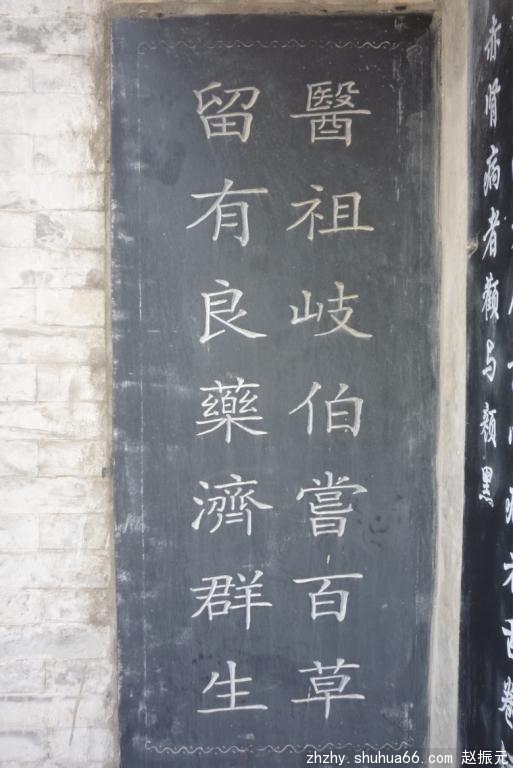 醫祖岐伯嘗百草
留有良藥濟群生
赤腎病者顴与顏黑
zhzhy.shuhua66.com 赵振元